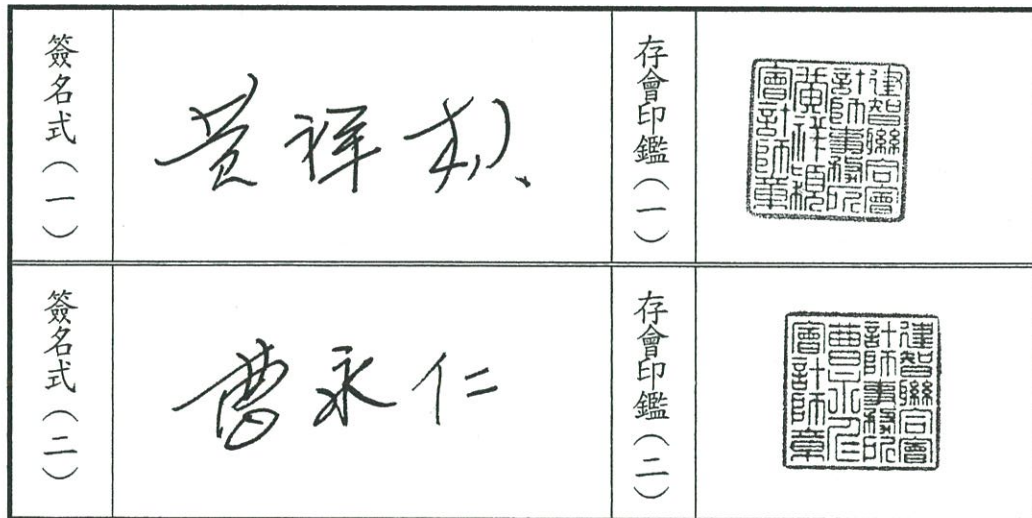 簽名式（一）
黃祥穎
存會印鑑（一）
建智聯合會
計師事務所
黃祥穎
會計師章
簽名式（二）
曹永仁
存會印鑑（二）
建智聯合會
計師事務所
曹永仁
會計師章